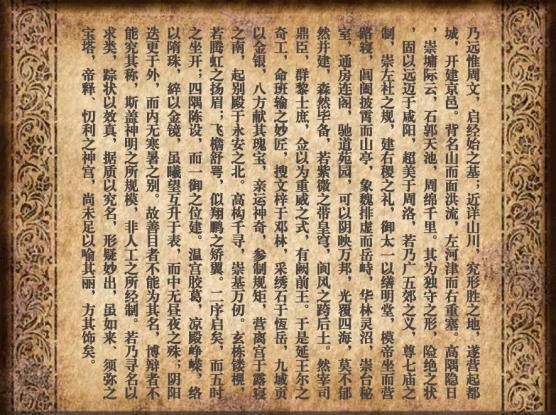 乃远惟周文，启经始之基；近详山川，究形胜之地，遂营起都
城，开建京邑。背名山而面洪流，左河津而右重塞。高隅隐日
，崇墉际云，石郭天池，周绵千里。其为独守之形，险绝之状
，固以远迈于咸阳，超美于周洛。若乃广五郊之义，尊七庙之
制，崇左社之规，建右稷之礼，御太一以缮明堂，模帝坐而营
路寝，阊阖披霄而山亭，象魏排虚而岳峙，华林灵沼，崇台秘
室，通房连阁，驰道苑园，可以阴映万邦，光覆四海，莫不郁
然并建，森然毕备，若紫微之带皇穹，阆风之跨后土。然宰司
鼎臣，群黎士庶，佥以为重威之式，有阙前王。于是延王尔之
奇工，命班输之妙匠，搜文梓于邓林，采绣石于恒岳，九域贡
以金银，八方献其瑰宝，亲运神奇，参制规矩，营离宫于露寝
之南，起别殿于永安之北。高构千寻，崇基万仞。玄栋镂榥，
若腾虹之扬眉；飞檐舒咢，似翔鹏之矫翼。二序启矣，而五时
之坐开；四隅陈设，而一御之位建。温宫胶葛，凉殿峥嵘，络
以隋珠，綷以金镜，虽曦望互升于表，而中无昼夜之殊；阴阳
迭更于外，而内无寒暑之别。故善目者不能为其名，博辩者不
能究其称，斯盖神明之所规模，非人工之所经制。若乃寻名以
求类，踪状以效真，据质以究名，形疑妙出，虽如来、须弥之
宝塔，帝释、忉利之神宫，尚未足以喻其丽，方其饰矣。